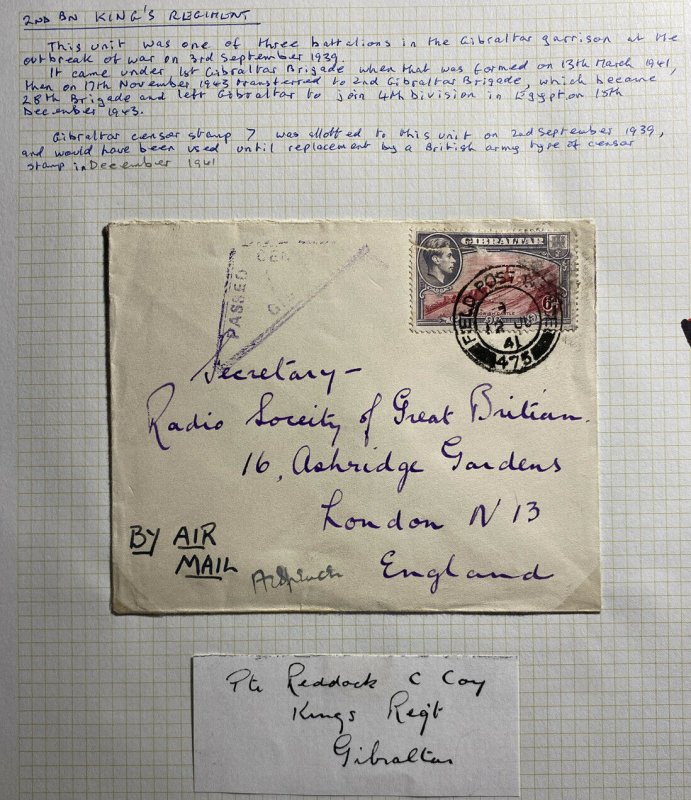 2ND BN KING'S REGIMENT
This unit was one of three battalions in the Gibraltar garrison at the
outbreak of war on 3rd September 1939.
It came under 1st Gibraltar Brigade when that was formed on 13th March 1941,
then on 17th November 1943 transferred to 2nd Gibraltar Brigade, which became
28th Brigade and left Gibraltar to join 4th Division in Egypt on 15th
December 1943.
Gibraltar censor stamp 7 was allotted to this unit on 2nd September 1939,
and would have been used until replacement by a British army type of censor
stamp in December 1941
PASSED
CEN
GI
GIBRALTAR
FIELD POST OFFICE
41
475
Secretary -
Radio Soceity of Great Britian.
16, Ashridge Gardens
London N 13
England
BY AIR
MAIL
Pte Reddock C Coy
Kings Regt
Gibraltar